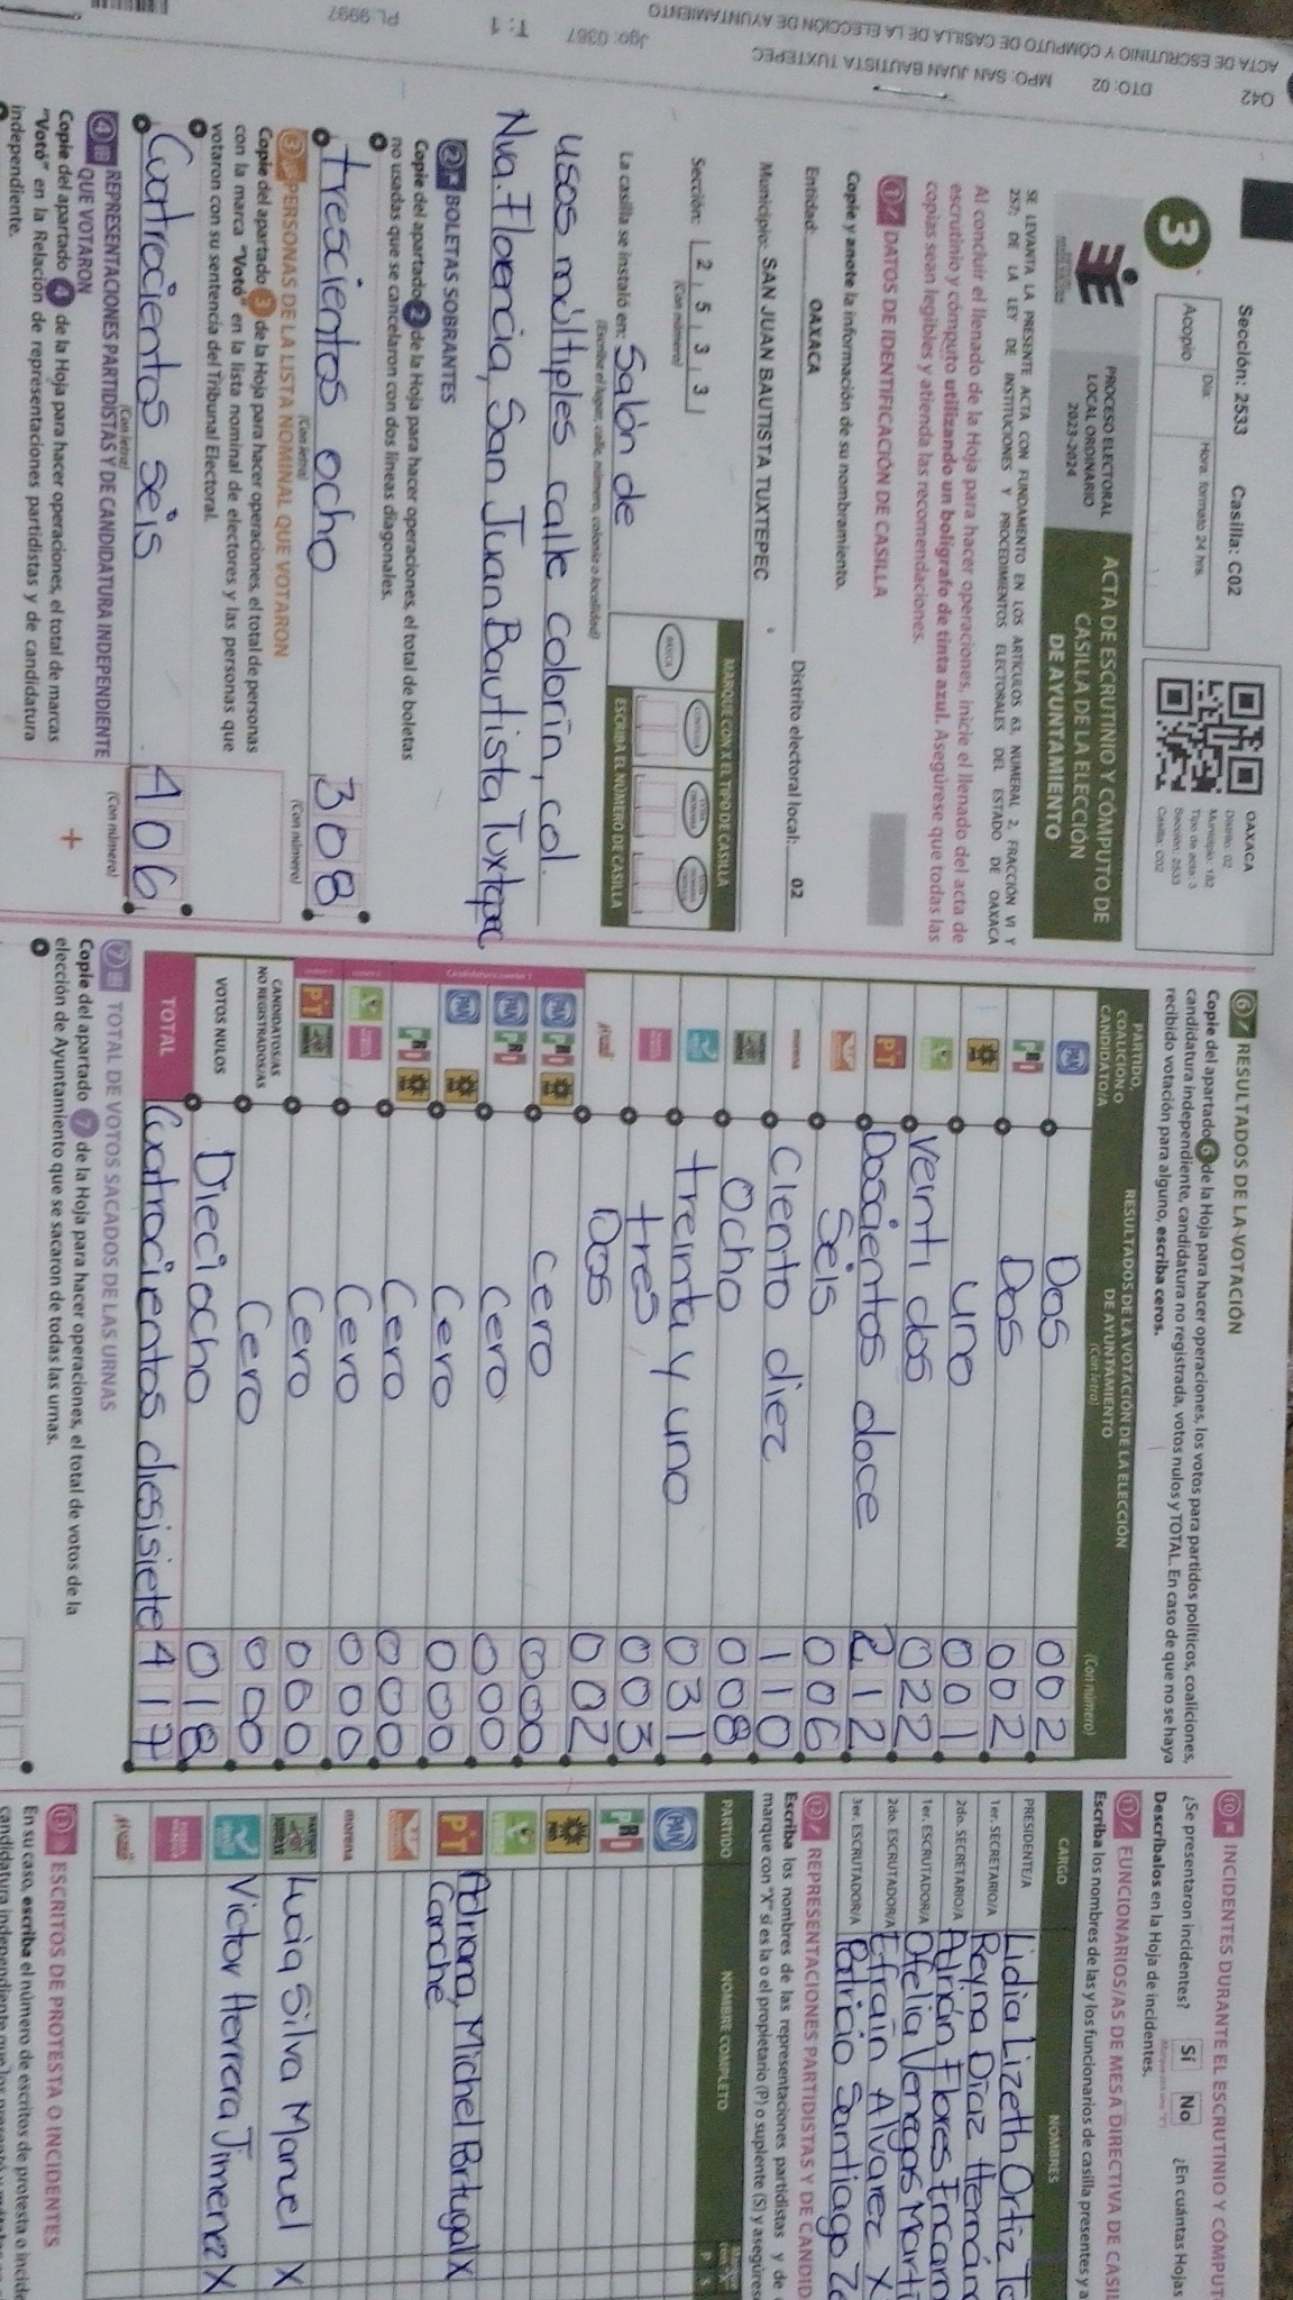 042
DTO: 02
MPO: SAN JUAN BAUTISTA TUXTEPEC
Jgo: 0367
T: 1
PL: 9997
ACTA DE ESCRUTINIO Y CÓMPUTO DE CASILLA DE LA ELECCIÓN DE AYUNTAMIENTO
Sección: 2533 Casilla: C02
3
Día Hora, formato 24 hrs.
Acopio
OAXACA
Distrito: 02
Municipio: 182
Tipo de acta: 3
Sección: 2533
Casilla: C02
PROCESO ELECTORAL
LOCAL ORDINARIO
2023-2024
ACTA DE ESCRUTINIO Y CÓMPUTO DE
CASILLA DE LA ELECCIÓN
DE AYUNTAMIENTO
SE LEVANTA LA PRESENTE ACTA CON FUNDAMENTO EN LOS ARTÍCULOS 63, NUMERAL 2, FRACCIÓN VI Y
257; DE LA LEY DE INSTITUCIONES Y PROCEDIMIENTOS ELECTORALES DEL ESTADO DE OAXACA
Al concluir el llenado de la Hoja para hacer operaciones, inicie el llenado del acta de
escrutinio y cómputo utilizando un bolígrafo de tinta azul. Asegúrese que todas las
copias sean legibles y atienda las recomendaciones.
1 DATOS DE IDENTIFICACIÓN DE CASILLA
Copie y anote la información de su nombramiento.
Entidad: OAXACA Distrito electoral local: 02
Municipio: SAN JUAN BAUTISTA TUXTEPEC
Sección: 2 5 3 3
(Con número)
MARQUE CON X EL TIPO DE CASILLA
BÁSICA
ESCRIBA EL NÚMERO DE CASILLA
La casilla se instaló en: Salón de
(Escriba el lugar, calle, número, colonia o localidad)
usos múltiples calle colorín, col.
Nva. Florencia, San Juan Bautista Tuxtepec
2 BOLETAS SOBRANTES
Copie del apartado 2 de la Hoja para hacer operaciones, el total de boletas
no usadas que se cancelaron con dos líneas diagonales.
trescientos ocho 308
(Con letra) (Con número)
3 PERSONAS DE LA LISTA NOMINAL QUE VOTARON
Copie del apartado 3 de la Hoja para hacer operaciones, el total de personas
con la marca "Votó" en la lista nominal de electores y las personas que
votaron con su sentencia del Tribunal Electoral.
Cuatrocientos seis 406
(Con letra) (Con número)
4 REPRESENTACIONES PARTIDISTAS Y DE CANDIDATURA INDEPENDIENTE
QUE VOTARON
Copie del apartado 4 de la Hoja para hacer operaciones, el total de marcas
"Votó" en la Relación de representaciones partidistas y de candidatura
independiente.
+
6 RESULTADOS DE LA VOTACIÓN
Copie del apartado 6 de la Hoja para hacer operaciones, los votos para partidos políticos, coaliciones,
candidatura independiente, candidatura no registrada, votos nulos y TOTAL. En caso de que no se haya
recibido votación para alguno, escriba ceros.
PARTIDO,
COALICIÓN O
CANDIDATO/A
RESULTADOS DE LA VOTACIÓN DE LA ELECCIÓN
DE AYUNTAMIENTO
(Con letra) (Con número)
PAN Dos 002
PRI Dos 002
uno 001
Veinti dos 022
PT Doscientos doce 212
Seis 006
morena Ciento diez 110
Ocho 008
treinta y uno 031
tres 003
Dos 002
PAN PRI cero 000
PAN PRI Cero 000
PAN Cero 000
PRI Cero 000
Cero 000
PT Cero 000
CANDIDATOS/AS
NO REGISTRADOS/AS Cero 000
VOTOS NULOS Dieciocho 018
TOTAL Cuatrocientos diesisiete 417
7 TOTAL DE VOTOS SACADOS DE LAS URNAS
Copie del apartado 7 de la Hoja para hacer operaciones, el total de votos de la
elección de Ayuntamiento que se sacaron de todas las urnas.
10 INCIDENTES DURANTE EL ESCRUTINIO Y CÓMPUT
¿Se presentaron incidentes? Sí No ¿En cuántas Hojas
Descríbalos en la Hoja de incidentes.
11 FUNCIONARIOS/AS DE MESA DIRECTIVA DE CASI
Escriba los nombres de las y los funcionarios de casilla presentes y a
CARGO NOMBRES
PRESIDENTE/A Lidia Lizeth Ortiz To
1er. SECRETARIO/A Reyna Díaz Hernán
2do. SECRETARIO/A Adrián Flores Encarn
1er. ESCRUTADOR/A Ofelia Venegas Marti
2do. ESCRUTADOR/A Efraín Alvarez X
3er. ESCRUTADOR/A Patricio Santiago
12 REPRESENTACIONES PARTIDISTAS Y DE CANDID
Escriba los nombres de las representaciones partidistas y de
marque con "X" si es la o el propietario (P) o suplente (S) y asegúres
PARTIDO NOMBRE COMPLETO P S
PAN
PRI
PT Adriana, Michel Portugal X
Canché
morena
Lucia Silva Manuel X
Victor Herrera Jimenez X
13 ESCRITOS DE PROTESTA O INCIDENTES
En su caso, escriba el número de escritos de protesta o incide